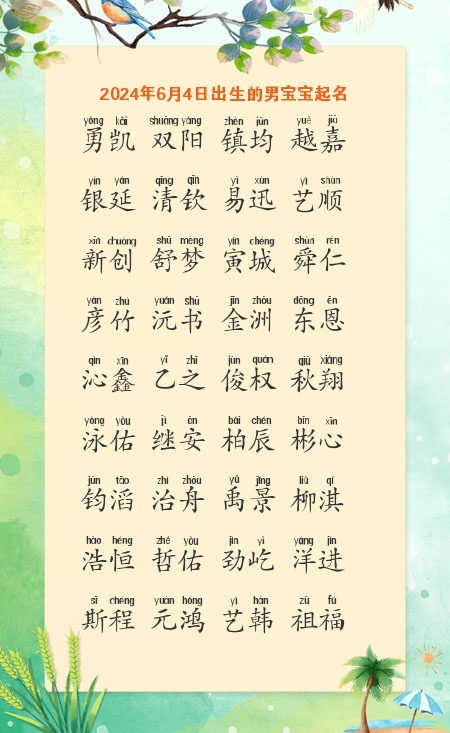 2024年6月4日出生的男宝宝起名
yǒng kǎi shuāng yáng zhèn jūn yuè jiā
勇凯 双阳 镇均 越嘉
yín yán qīng qīn yì xùn yì shùn
银延 清钦 易迅 艺顺
xīn chuàng shū mèng yín chéng shùn rén
新创 舒梦 寅城 舜仁
yàn zhú yuán shū jīn zhōu dōng ēn
彦竹 沅书 金洲 东恩
qìn xīn yǐ zhī jùn quán qiū xiáng
沁鑫 乙之 俊权 秋翔
yǒng yòu jì ān bǎi chén bīn xīn
泳佑 继安 柏辰 彬心
jūn tāo zhì zhōu yǔ jǐng liǔ qí
钧滔 治舟 禹景 柳淇
hào héng zhé yòu jìn yì yáng jìn
浩恒 哲佑 劲屹 洋进
sī chéng yuán hóng yì hán zǔ fú
斯程 元鸿 艺韩 祖福